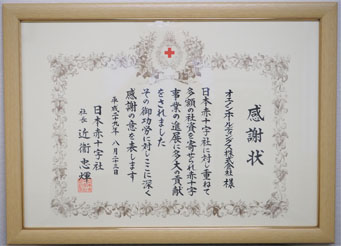 感謝状
オエノンホールディングス株式会社 様
日本赤十字社に対し重ねて
多額の社資を寄せられ赤十字
事業の進展に多大の貢献
をされました
その御功労に対しここに深く
感謝の意を表します
平成二十九年 八月二十三日
日本赤十字社
社長 近衞忠煇